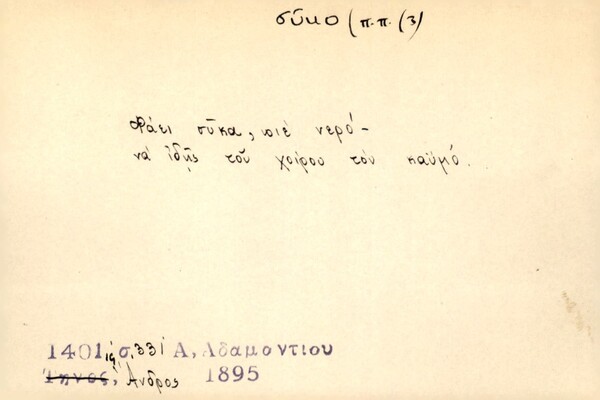 σῦκο (π.π. (3)
Φάει σῦκα, πιέ νερό -
νά ἰδῇς τοῦ χοίρου τόν καϋμό.
1401, ιη', σ. 331 Α, Αδαμοντιου
Τηνος, Ἄνδρος 1895